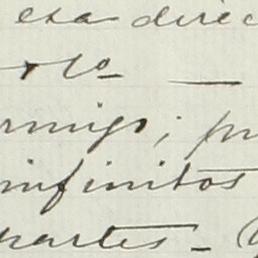 esa direc
—
rmigo; pr
infinitos
partes —